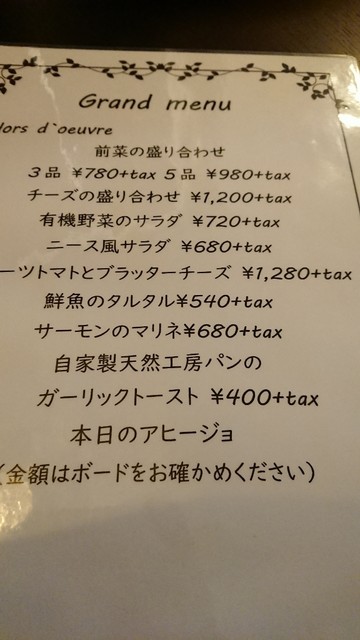 Grand menu
d`oeuvre
前菜の盛り合わせ
3品 ¥780+tax 5品 ¥980+tax
チーズの盛り合わせ ¥1,200+tax
有機野菜のサラダ ¥720+tax
ニース風サラダ ¥680+tax
ーツトマトとブラッターチーズ ¥1,280+tax
鮮魚のタルタル¥540+tax
サーモンのマリネ¥680+tax
自家製天然工房パンの
ガーリックトースト ¥400+tax
本日のアヒージョ
(金額はボードをお確かめください)